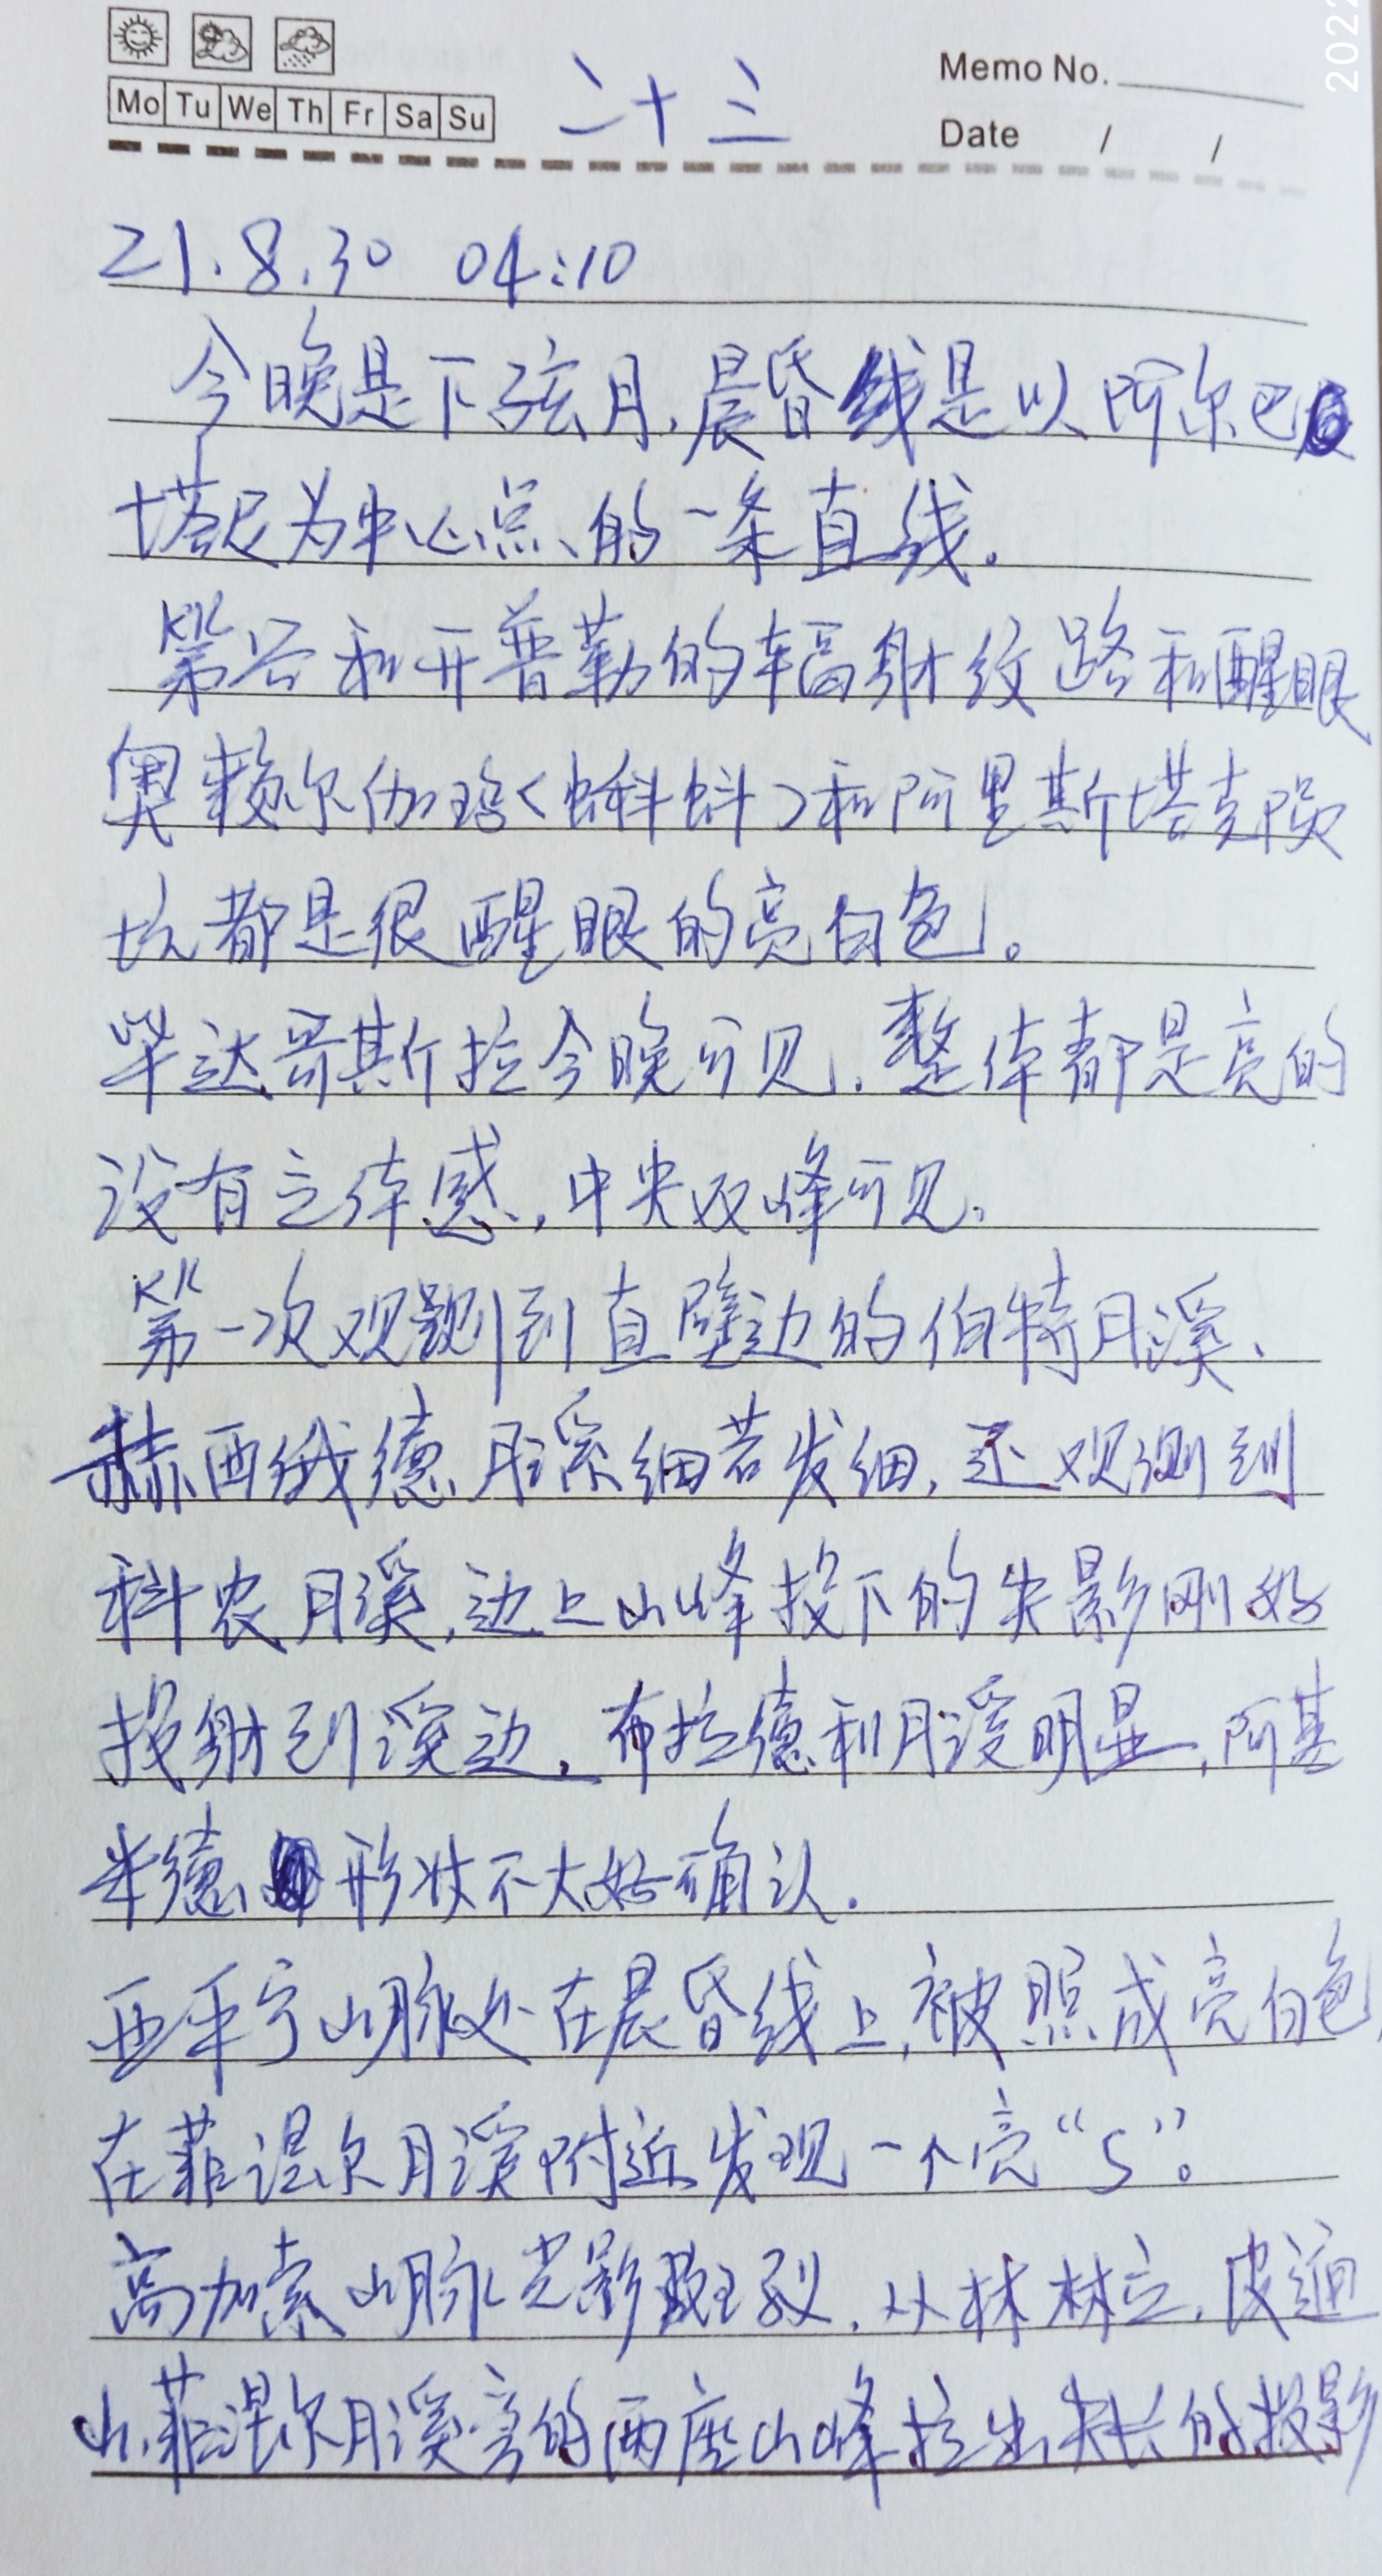 Mo Tu We Th Fr Sa Su
二十三
Memo No.
Date / /
2022
21.8.30 04:10
今晚是下弦月,晨昏线是以阿尔巴
塔尼为中心点的一条直线。
第谷和开普勒的辐射纹路和醒眼
奥赖尔伽玛(蝌蚪)和阿里斯塔克陨
坑都是很醒眼的亮白色。
毕达哥斯拉今晚可见,整体都是亮的
没有立体感,中央双峰可见。
第一次观测到直壁边的伯特月溪、
赫西俄德月溪细若发细,还观测到
科农月溪,边上山峰投下的尖影刚好
投射到溪边,布拉德利月溪明显,阿基
米德形状不太好确认.
亚平宁山脉处在晨昏线上,被照成亮白色,
在菲涅尔月溪附近发现一个亮“S”。
高加索山脉光影斑裂,丛林林立,皮通
山、菲涅尔月溪旁的两座山峰拉出尖长的投影